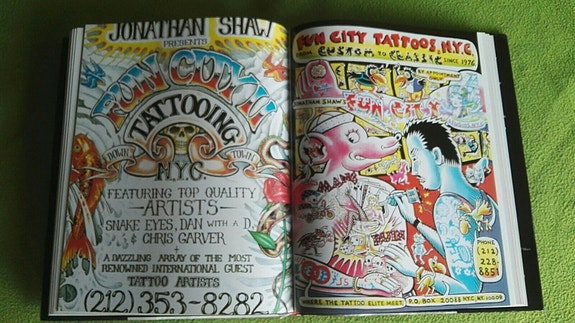 JONATHAN SHAW
PRESENTS
FUN CITY
TATTOOING
DOWN TOWN
N.Y.C.
FEATURING TOP QUALITY
-ARTISTS-
SNAKE EYES, DAN WITH A D,
& CHRIS GARVER
+
A DAZZLING ARRAY OF THE MOST
RENOWNED INTERNATIONAL GUEST
TATTOO ARTISTS
(212) 353-8282
FUN CITY TATTOOS, N.Y.C.
FROM CUSTOM TO CLASSIC SINCE 1976
BY APPOINTMENT
ONLY
JONATHAN SHAW'S
FUN CITY
PHONE
(212)
228-
8851
WHERE THE TATTOO ELITE MEET P.O. BOX 20088 N.Y.C. N.Y. 10009